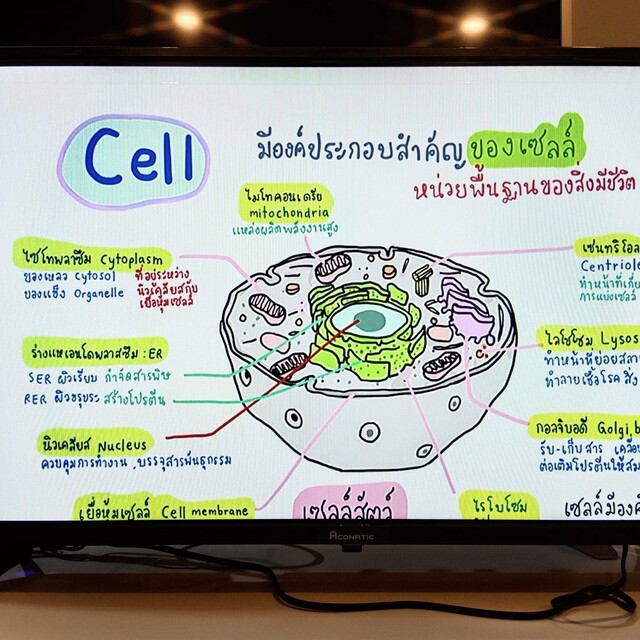 Cell
มีองค์ประกอบสำคัญของเซลล์
หน่วยพื้นฐานของสิ่งมีชีวิต
ไมโทคอนเดรีย
mitochondria
แหล่งผลิตพลังงานสูง
ไซโทพลาซึม Cytoplasm
ของเหลว Cytosol
ของแข็ง Organelle
ที่อยู่ระหว่าง
นิวเคลียสกับ
เยื่อหุ้มเซลล์
ร่างแหเอนโดพลาสซึม : ER
SER ผิวเรียบ กำจัดสารพิษ
RER ผิวขรุขระ สร้างโปรตีน
นิวเคลียส Nucleus
ควบคุมการทำงาน, บรรจุสารพันธุกรรม
เยื่อหุ้มเซลล์ Cell membrane
เซลล์สัตว์
เซนทริโอล
Centriole
ทำหน้าที่เกี่ย
การแบ่งเซลล์
ไลโซโซม Lysos
ทำหน้าที่ย่อยสลา
ทำลายเชื้อโรค สิ่ง
กอลจิบอดี Golgi b
รับ-เก็บสาร เคลื่อ
ต่อเติมโปรตีนให้สม
ไรโบโซม
เซลล์มีองค์
ACONATIC